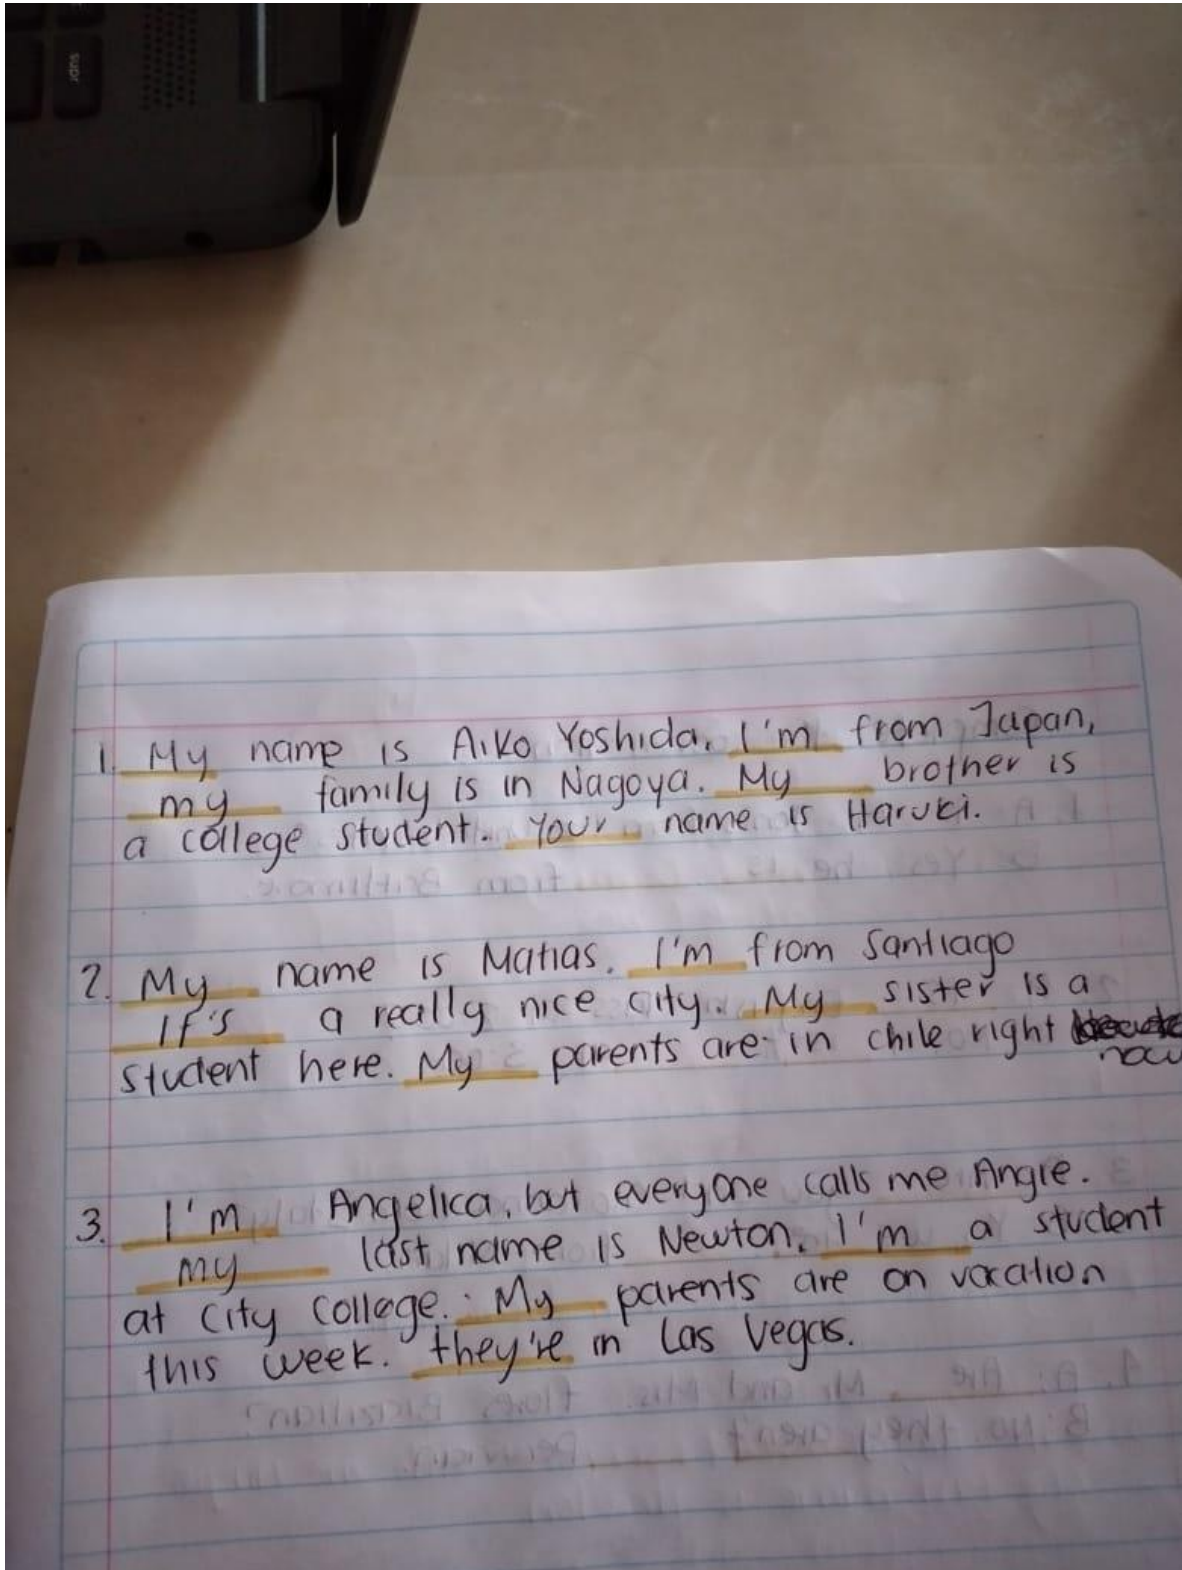 supr
1. My name is Aiko Yoshida. I'm from Japan,
my family is in Nagoya. My brother is
a college student. Your name is Haruki.
2. My name is Matias. I'm from Santiago
It's a really nice city. My sister is a
student here. My parents are in chile right
now
3. I'm Angelica, but everyone calls me Angie.
my last name is Newton. I'm a student
at City College. My parents are on vacation
this week. they're in Las Vegas.